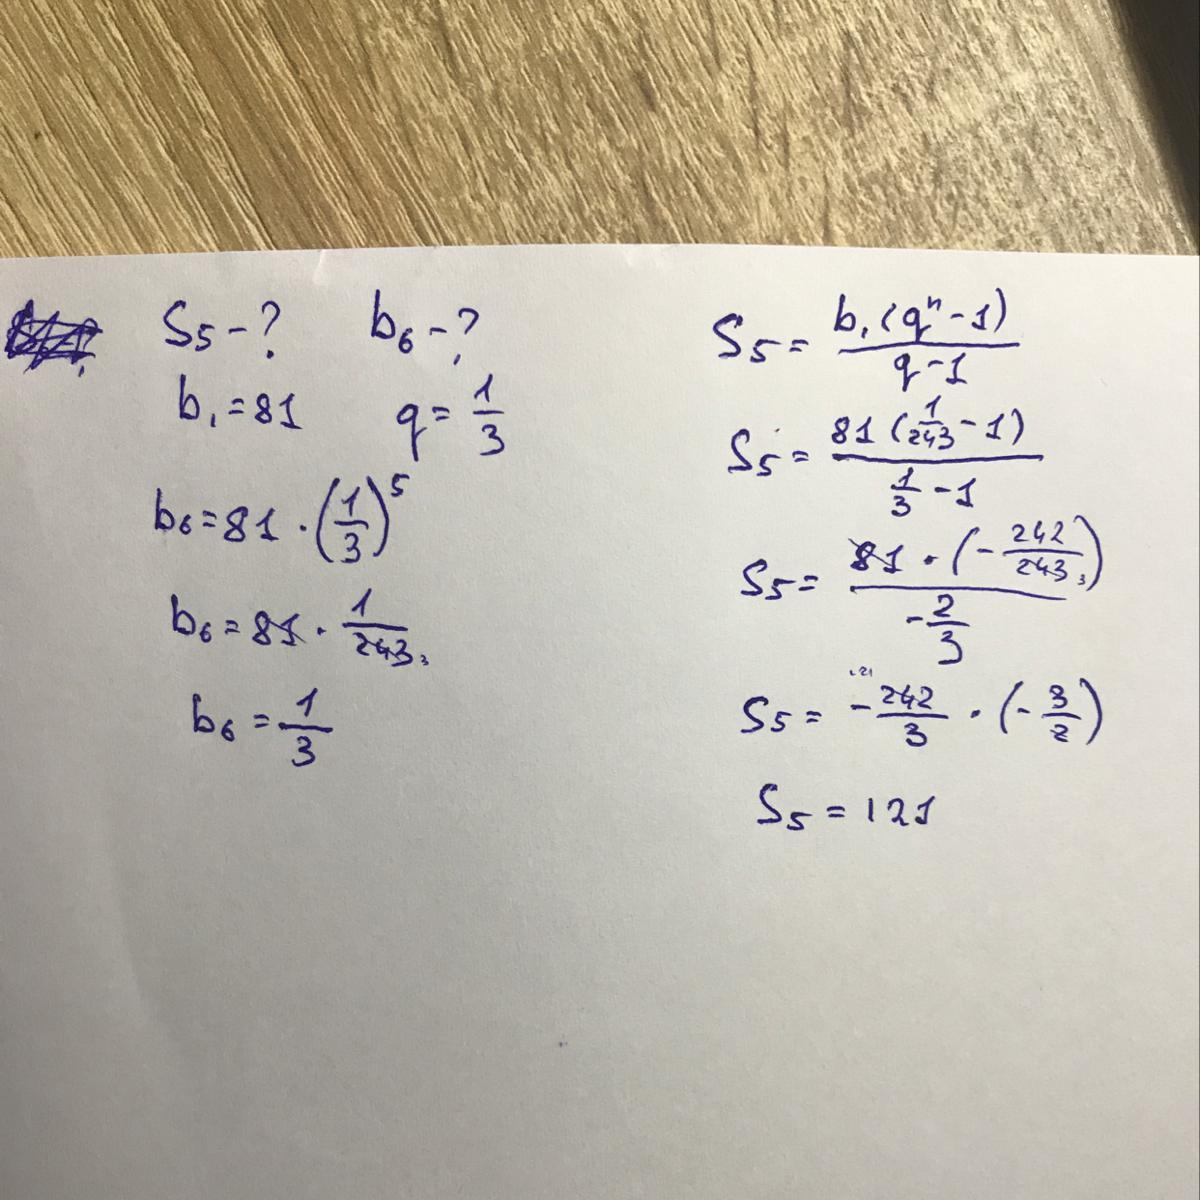 S₅ - ? b₆ - ?
b₁ = 81 q = 1/3
b₆ = 81 · (1/3)⁵
b₆ = 81 · 1/243 ₃
b₆ = 1/3
S₅ = b₁ (qⁿ - 1) / q - 1
S₅ = 81 (1/243 - 1) / 1/3 - 1
S₅ = 81 · (- 242/243 ₃) / - 2/3
S₅ = - 242/3 · (- 3/2) ¹²¹
S₅ = 121